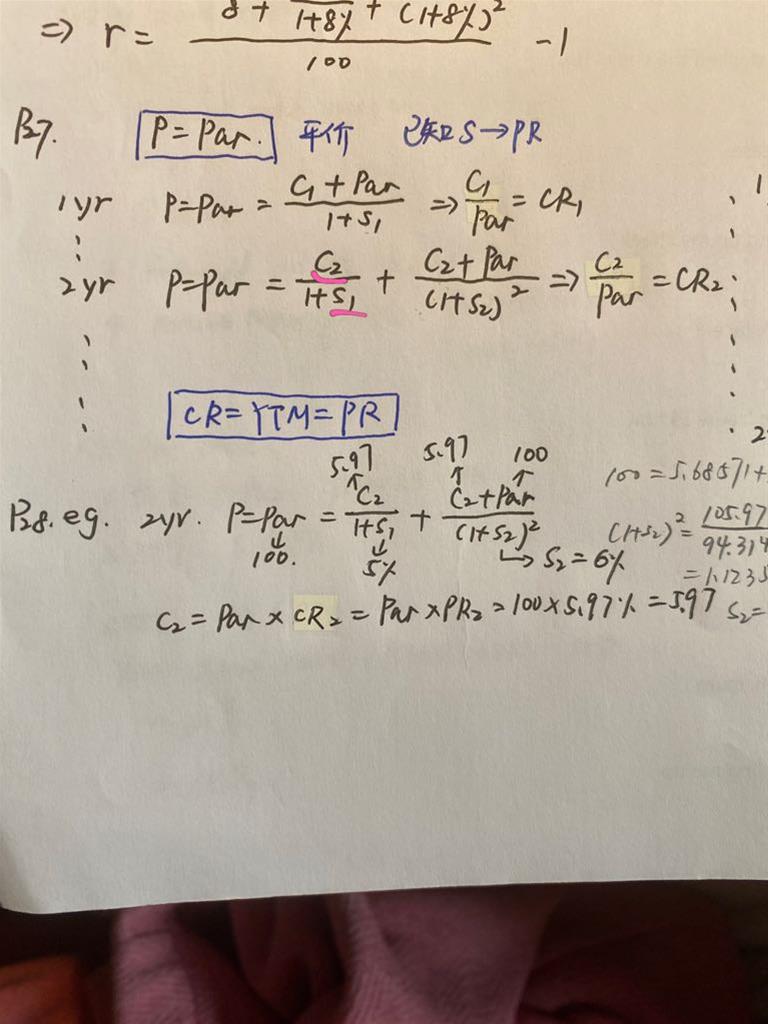 ⇒ r = (8 + 8/(1+8%) + (1+8%)²)/100 - 1
P27. P = Par. 平价 已知 S → PR
1yr P = Par = (C₁ + Par)/(1+S₁) ⇒ C₁/Par = CR₁
2yr P = Par = C₂/(1+S₁) + (C₂ + Par)/(1+S₂)² ⇒ C₂/Par = CR₂
CR = YTM = PR
5.97 5.97 100
P28. eg. 2yr. P = Par = C₂/(1+S₁) + (C₂ + Par)/(1+S₂)²
100. 5% → S₂ = 6%
C₂ = Par × CR₂ = Par × PR₂ = 100 × 5.97% = 5.97
100 = 5.68571 +
(1+S₂)² = 105.97/94.314
= 1.1235
S₂ =